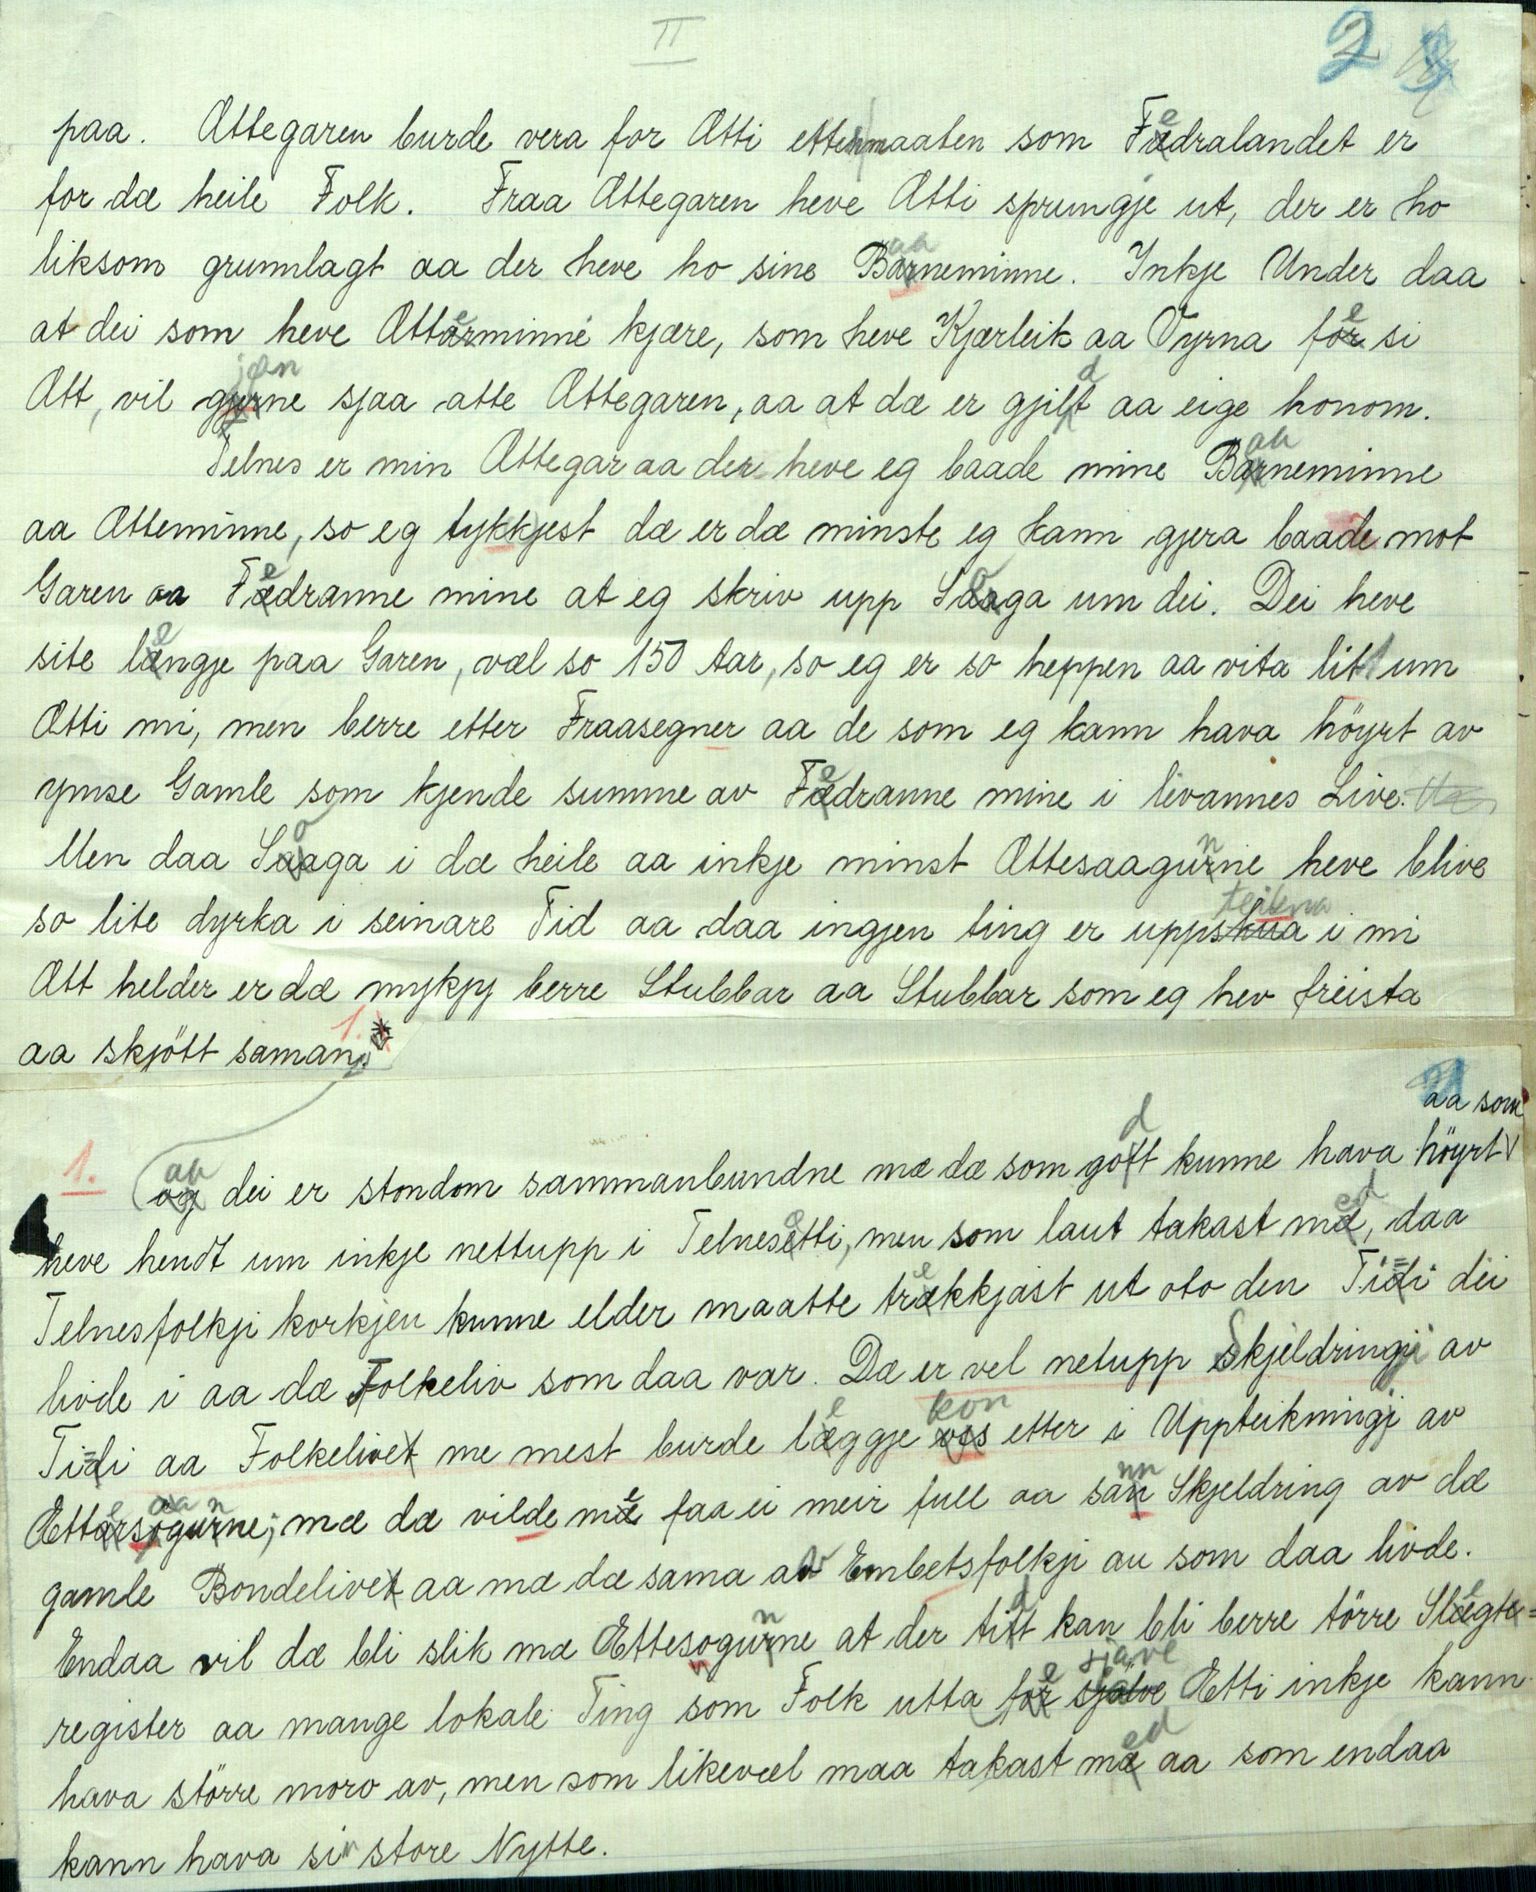 II
2
paa. Ættegaren burde vera for Ætti ettermaaten som Fedralandet er
for dæ heile Folk. Fraa Ættegaren heve Ætti sprungje ut, der er ho
liksom grunnlagt aa der heve ho sine Baaneminne. Inkje Under daa
at dei som heve Ætteminne kjære, som heve Kjærleik aa Vyrna fe si
Ætt, vil jønne sjaa atte Ættegaren, aa at dæ er gjildt aa eige honom.
Telnes er min Ættegar aa der heve eg baade mine Baaneminne
aa Ætteminne, so eg tykkjest dæ er dæ minste eg kann gjera baade mot
Garen aa Fedranne mine at eg skriv upp Soga um dei. Dei heve
site lengje paa Garen, væl so 150 Aar, so eg er so heppen aa vita lit um
Ætti mi, men berre etter Fraasegner aa de som eg kann hava höyrt av
ymse Gamle som kjende summe av Fedranne mine i livannes Live.
Men daa Soga i dæ heile aa inkje minst Ættesaagunne heve blive
so lite dyrka i seinare Tid aa daa ingjen ting er uppteikna i mi
Ætt helder er dæ mykjy berre Stubbar aa Stubbar som eg hev freista
aa skjött saman, 1.*
aa som
1. aa dei er stondom sammanbundne mæ dæ som godt kunne hava höyrt
heve hendt um inkje nettupp i Telnesætti, men som laut takast med, daa
Telnesfolkji korkjeu kunne elder maatte trekkjast ut oto den Tii dei
livde i aa dæ Folkeliv som daa var. Dæ er vel netupp Skjeldringji av
Tii aa Folkelive me mest burde leggje kon etter i Uppteikningji av
Ættesaagunne; mæ dæ vilde me faa ei meir full aa sann Skjeldring av dæ
gamle Bondelive aa mæ dæ sama av Embetsfolkji au som daa livde.
Endaa vil dæ bli slik mæ Ættesogunne at der tidt kan bli berre törre Slegte=
register aa mange lokale Ting som Folk utta fe sjave Ætti inkje kann
hava större moro av, men som likevæl maa takast med aa som endaa
kann hava sin store Nytte.